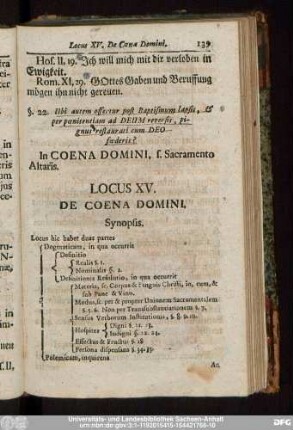 Locus XV. De Cœna Domini. 139
Hos. II. 19. Ich will mich mit dir verloben in
Ewigkeit.
Rom. XI, 29. GOttes Gaben und Beruffung
mögen ihn nicht gereuen.
§. 22. Ubi autem offertur post Baptismum lapsis, &
per pœnitentiam ad DEUM reversis, pi-
gnus restaurati cum DEO
fœderis?
In COENA DOMINI, s. Sacramento
Altaris.
LOCUS XV.
DE COENA DOMINI,
Synopsis.
Locus hic habet duas partes
Dogmaticam, in qua occurrit
Definitio
Realis §. 1.
Nominalis §. 2.
Definitionis Resolutio, in qua occurrit
Materia, sc. Corpus & Sanguis Christi, in, cum, &
sub Pane & Vino.
Modus, sc. per & propter Unionem Sacramentalem
§. 5. 6. Non per Transsubstantiationem §. 7.
Sensus Verborum Institutionis, §. 8. 9. 10.
Hospites
Digni §. 12. 13.
Indigni §. 12. 13.
Effectus & Fructus §. 18
Persona dispensans §. 34. 39
Polemicam, in quam
Ar.
Universitäts- und Landesbibliothek Sachsen-Anhalt
urn:nbn:de:gbv:3:1-1192015415-154421768-10